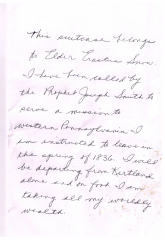 This suitcase belongs
to Elder Erastus Snow.
I have been called by
the Prophet Joseph Smith to
serve a mission to
western Pennsylvania. I
am instructed to leave in
the spring of 1836. I will
be departing from Kirtland
alone and on foot. I am
taking all my worldly
wealth.